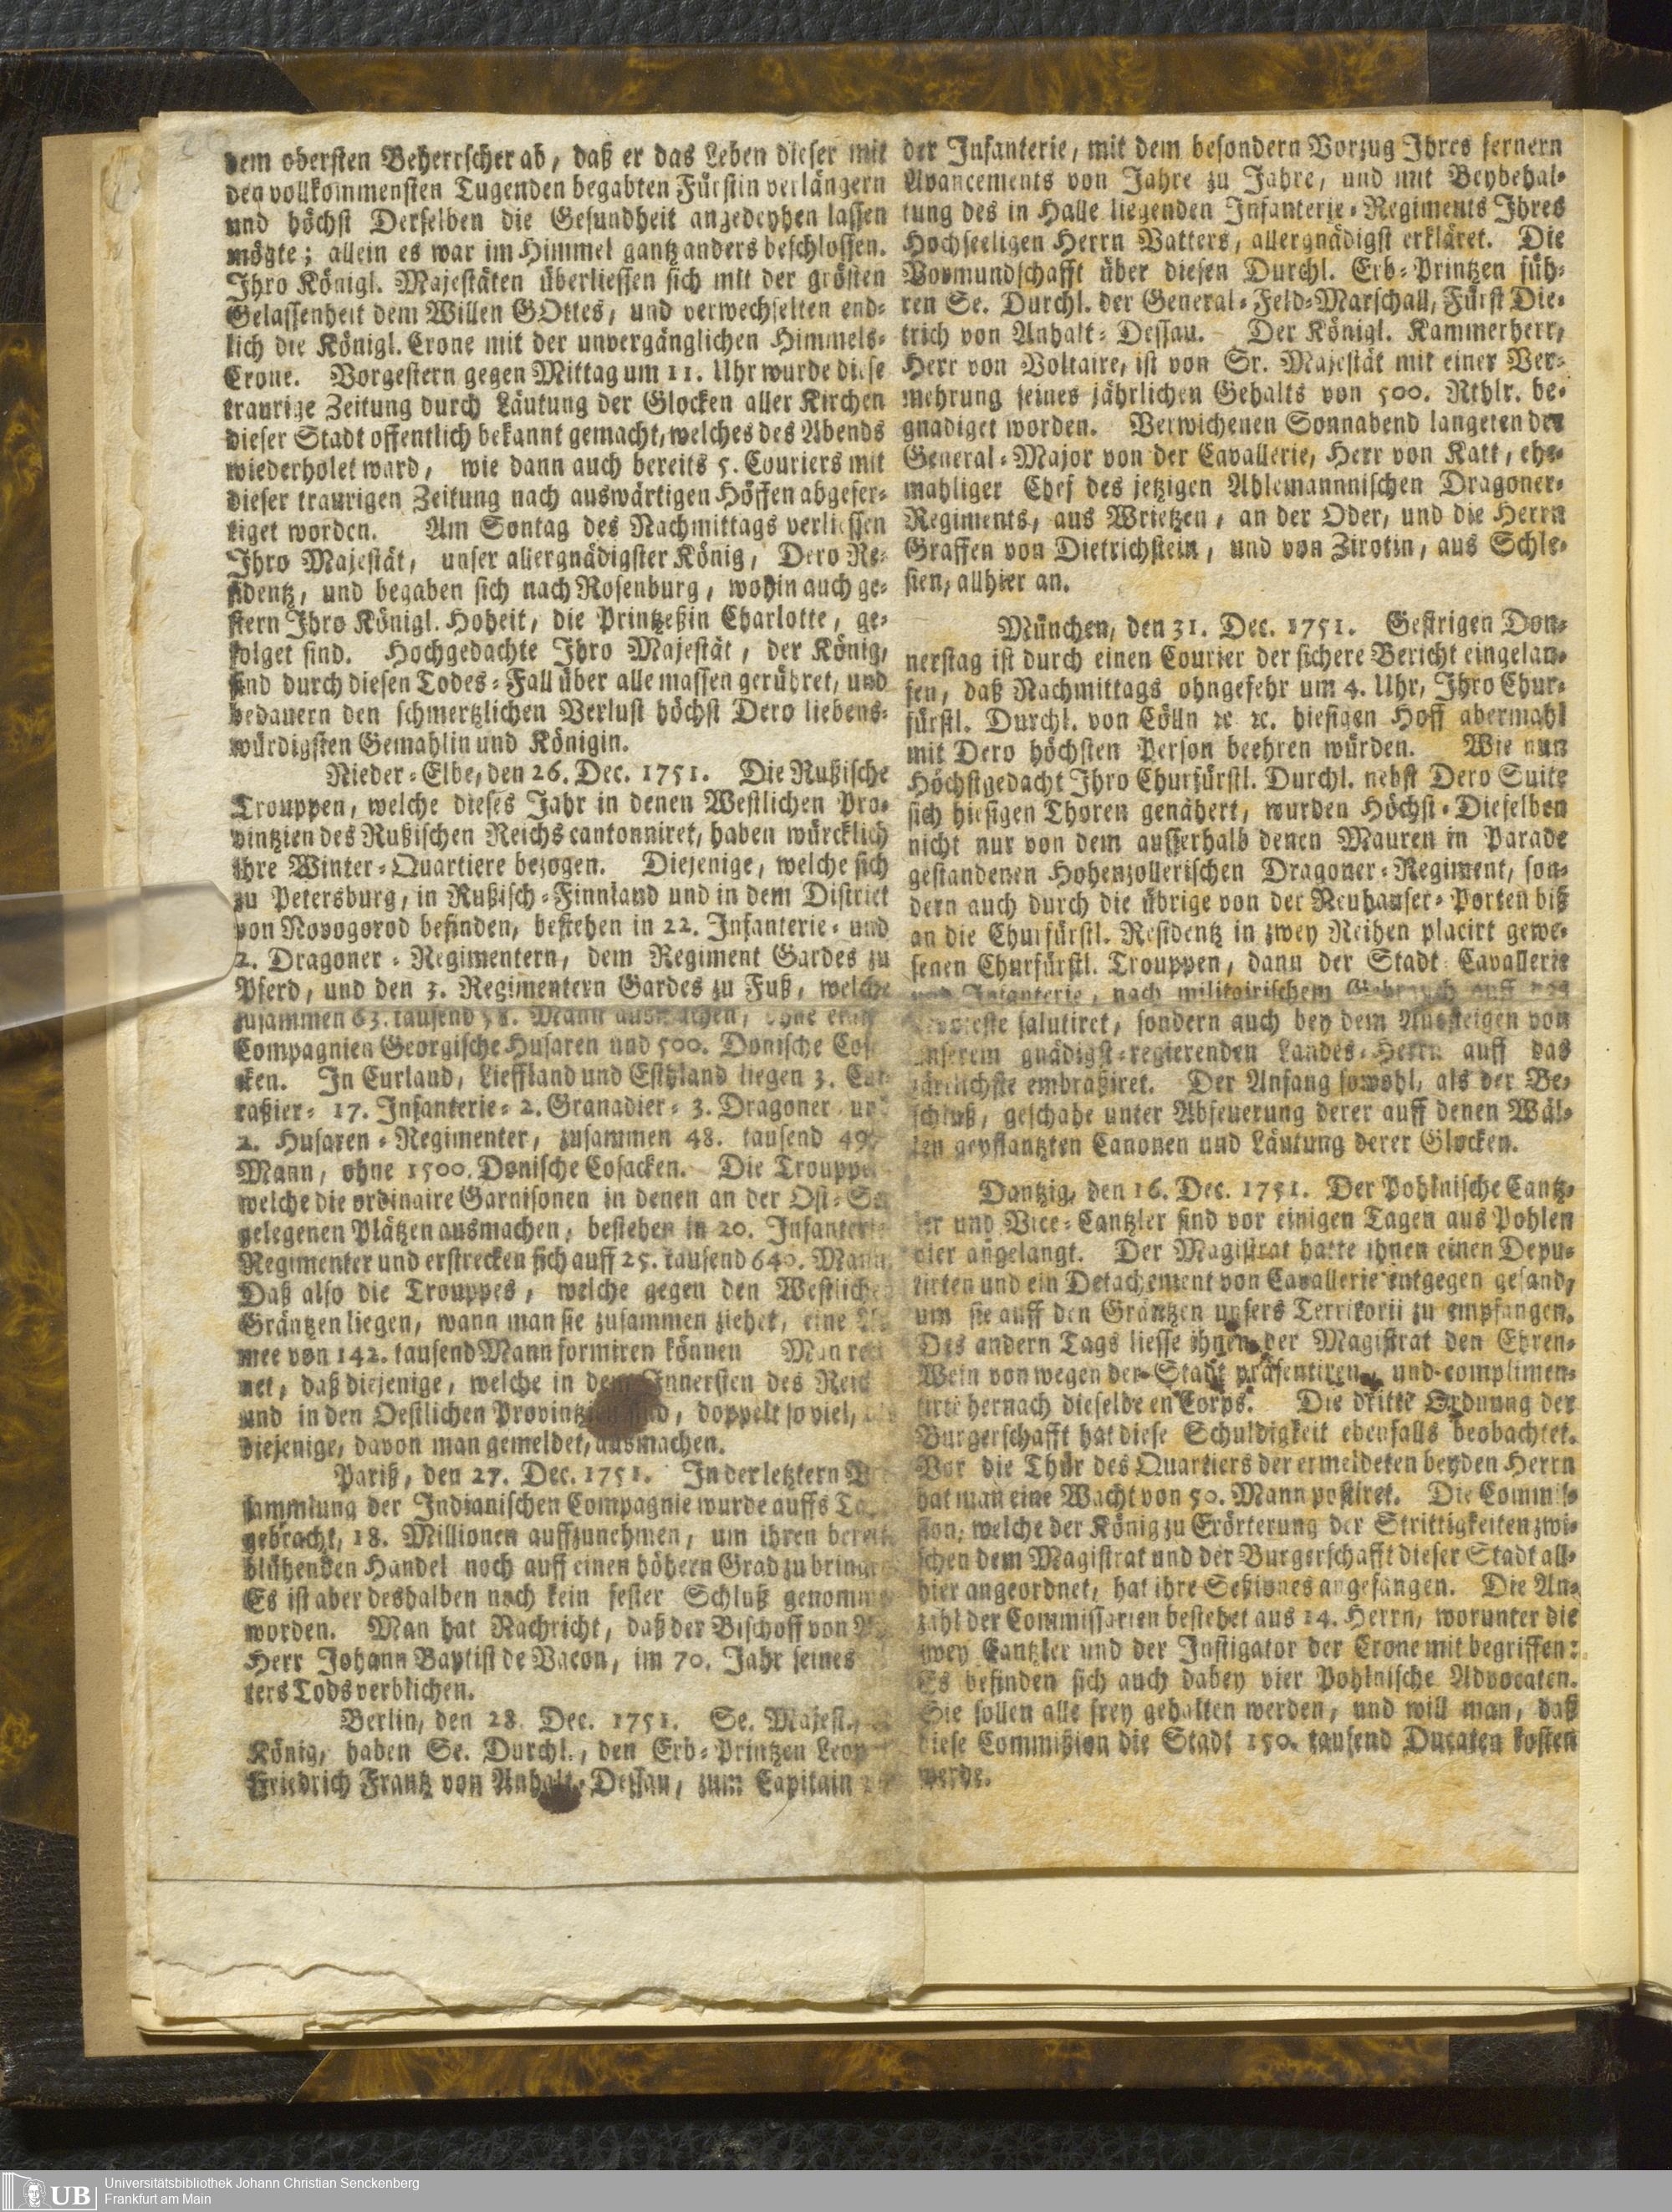 dem obersten Beherrscher ab, daß er das Leben dieser mit
den vollkommensten Tugenden begabten Fürstin verlängern
und höchst Derselben die Gesundheit angedeyhen lassen
mögte; allein es war im Himmel gantz anders beschlossen.
Ihro Königl. Majestäten überliessen sich mit der grösten
Gelassenheit dem Willen GOttes, und verwechselten end-
lich die Königl. Crone mit der unvergänglichen Himmels-
Crone. Vorgestern gegen Mittag um 11. Uhr wurde diese
traurige Zeitung durch Läutung der Glocken aller Kirchen
dieser Stadt offentlich bekannt gemacht, welches des Abends
wiederholet ward, wie dann auch bereits 5. Couriers mit
dieser traurigen Zeitung nach auswärtigen Höffen abgefer-
tiget worden. Am Sontag des Nachmittags verliessen
Ihro Majestät, unser allergnädigster König, Dero Re-
sidentz, und begaben sich nach Rosenburg, wohin auch ge-
stern Ihro Königl. Hoheit, die Printzeßin Charlotte, ge-
folget sind. Hochgedachte Ihro Majestät, der König,
sind durch diesen Todes-Fall über alle massen gerühret, und
bedauern den schmertzlichen Verlust höchst Dero liebens-
würdigsten Gemahlin und Königin.
Nieder-Elbe, den 26. Dec. 1751. Die Rußische
Trouppen, welche dieses Jahr in denen Westlichen Pro-
vintzien des Rußischen Reichs cantonniret, haben würcklich
ihre Winter-Quartiere bezogen. Diejenige, welche sich
zu Petersburg, in Rußisch-Finnland und in dem District
von Novogorod befinden, bestehen in 22. Infanterie- und
2. Dragoner-Regimentern, dem Regiment Gardes zu
Pferd, und den 3. Regimentern Gardes zu Fuß, welche
zusammen 63. tausend 58. Mann ausmachen, ohne
Compagnien Georgische Husaren und 500. Donische Cos
cken. In Curland, Lieffland und Esthland liegen 3.
raßier- 17. Infanterie- 2. Granadier- 3. Dragoner
2. Husaren-Regimenter, zusammen 48. tausend
Mann, ohne 1500. Donische Cosacken. Die Trouppe
welche die ordinaire Garnisonen in denen an der Ost-
gelegenen Plätzen ausmachen, bestehen in 20. Infanterie
Regimenter und erstrecken sich auff 25. tausend 640. Mann.
Daß also die Trouppes, welche gegen den Westlichen
Gräntzen liegen, wann man sie zusammen ziehet, eine
mee von 142. tausend Mann formiren können Man
net, daß diejenige, welche in dem Innersten des Reic
und in den Oestlichen Provintzien sind, doppelt so viel,
diejenige, davon man gemeldet, ausmachen.
Pariß, den 27. Dec. 1751. In der letztern
sammlung der Indianischen Compagnie wurde auffs
gebracht, 18. Millionen auffzunehmen, um ihren bereits
blühenden Handel noch auff einen höhern Grad zu bringen
Es ist aber deshalben noch kein fester Schluß genomm
worden. Man hat Nachricht, daß der Bischoff von
Herr Johann Baptist de Vacon, im 70. Jahr seines
ters Tods verblichen.
Berlin, den 28. Dec. 1751. Se. Majest.,
König, haben Se. Durchl., den Erb-Printzen Leop
Friedrich Frantz von Anhalt-Dessau, zum Capitain
der Infanterie, mit dem besondern Vorzug Ihres fernern
Avancements von Jahre zu Jahre, und mit Beybehal-
tung des in Halle liegenden Infanterie-Regiments Ihres
Hochseeligen Herrn Vatters, allergnädigst erkläret. Die
Vormundschafft über diesen Durchl. Erb-Printzen füh-
ren Se. Durchl. der General-Feld-Marschall, Fürst Die-
trich von Anhalt-Dessau. Der Königl. Kammerherr,
Herr von Voltaire, ist von Sr. Majestät mit einer Ver-
mehrung seines jährlichen Gehalts von 500. Rthlr. be-
gnadiget worden. Verwichenen Sonnabend langeten der
General-Major von der Cavallerie, Herr von Katt, ehe-
mahliger Chef des jetzigen Ahlemannnischen Dragoner-
Regiments, aus Wrietzen, an der Oder, und die Herrn
Graffen von Dietrichstein, und von Zirotin, aus Schle-
sien, allhier an.
München, den 31. Dec. 1751. Gestrigen Don-
nerstag ist durch einen Courier der sichere Bericht eingelau-
fen, daß Nachmittags ohngefehr um 4. Uhr, Ihro Chur-
fürstl. Durchl. von Cölln ꝛc ꝛc. hiesigen Hoff abermahl
mit Dero höchsten Person beehren würden. Wie nun
Höchstgedacht Ihro Churfürstl. Durchl. nebst Dero Suite
sich hiesigen Thoren genähert, wurden Höchst-Dieselben
nicht nur von dem ausserhalb denen Mauren in Parade
gestandenen Hohenzollerischen Dragoner-Regiment, son-
dern auch durch die übrige von der Neuhauser-Porten biß
an die Churfürstl. Residentz in zwey Reihen placirt gewe-
senen Churfürstl. Trouppen, dann der Stadt Cavallerie
und Infanterie, nach militairischem Gebrauch auff das
salutiret, sondern auch bey dem Aussteigen von
unserem gnädigst-regierenden Landes-Herrn auff das
zärtlichste embraßiret. Der Anfang sowohl, als der Be-
schluß, geschahe unter Abfeuerung derer auff denen Wäl-
len gepflantzten Canonen und Läutung derer Glocken.
Dantzig, den 16. Dec. 1751. Der Pohlnische Cantz-
ler und Vice-Cantzler sind vor einigen Tagen aus Pohlen
hier angelangt. Der Magistrat hatte ihnen einen Depu-
tirten und ein Detachement von Cavallerie entgegen gesand,
um sie auff den Gräntzen unsers Territorii zu empfangen.
Des andern Tags liesse ihnen der Magistrat den Ehren-
Wein von wegen der Stadt präsentiren, und complimen-
tirte hernach dieselbe en Corps. Die dritte Ordnung der
Burgerschafft hat diese Schuldigkeit ebenfalls beobachtet.
Vor die Thür des Quartiers der ermeldeten beyden Herrn
hat man eine Wacht von 50. Mann postiret. Die Commis-
sion, welche der König zu Erörterung der Strittigkeiten zwi-
schen dem Magistrat und der Burgerschafft dieser Stadt all-
hier angeordnet, hat ihre Seßiones angefangen. Die An-
zahl der Commissarien bestehet aus 14. Herrn, worunter die
zwey Cantzler und der Instigator der Crone mit begriffen:
Es befinden sich auch dabey vier Pohlnische Advocaten.
Sie sollen alle frey gehalten werden, und will man, daß
diese Commißion die Stadt 150. tausend Ducaten kosten
werde.
UB
Universitätsbibliothek Johann Christian Senckenberg
Frankfurt am Main